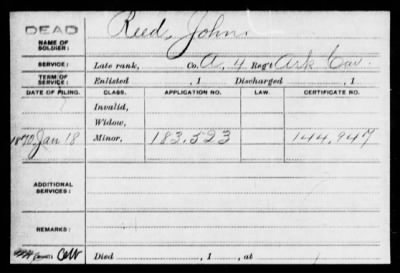 DEAD
Reed, John.
NAME OF SOLDIER:
SERVICE: Late rank, Co. A, 4 Reg't Ark Cav.
TERM OF SERVICE: Enlisted , 1 Discharged , 1
DATE OF FILING. CLASS. APPLICATION NO. LAW. CERTIFICATE NO.
Invalid,
Widow,
1870 Jan 18 Minor, 183.523 144.947
ADDITIONAL SERVICES:
REMARKS:
Died , 1 , at